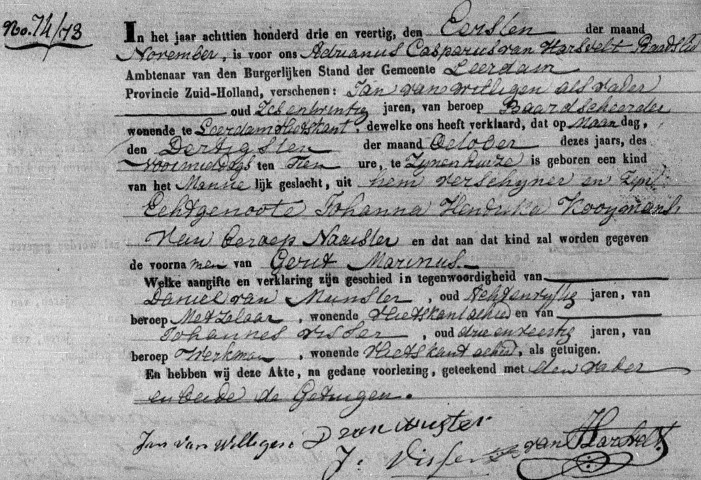 No. 74/73
In het jaar achttien honderd drie en veertig, den Eersten der maand
November, is voor ons Adrianus Casperus van Harsvelt Raadslid
Ambtenaar van den Burgerlijken Stand der Gemeente Leerdam
Provincie Zuid-Holland, verschenen: Jan van Willigen als vader
oud Zeventwintig jaren, van beroep Baardscheerder
wonende te Leerdam Vlietskant. dewelke ons heeft verklaard, dat op Maan dag,
den Dertigsten der maand October dezes jaars, des
voormiddags ten Tien ure, te Zynen huize is geboren een kind
van het Manne lijk geslacht, uit hem verschyner en Zyne
Echtgenoote Johanna Hendrika Kooymans
Van beroep Naaister en dat aan dat kind zal worden gegeven
de voorna men van Gerit Marinus.
Welke aangifte en verklaring zijn geschied in tegenwoordigheid van
Daniel van Munster, oud jaren, van
beroep Metzelaar, wonende Vlietskant en van
Johannes Visser, oud drie en veertig jaren, van
beroep Werkman, wonende Vlietskant, als getuigen.
En hebben wij deze Akte, na gedane voorlezing, geteekend met den vader
en beide de Getuigen.
Jan van Willigen D van Munster
J. Visser van Harsvelt